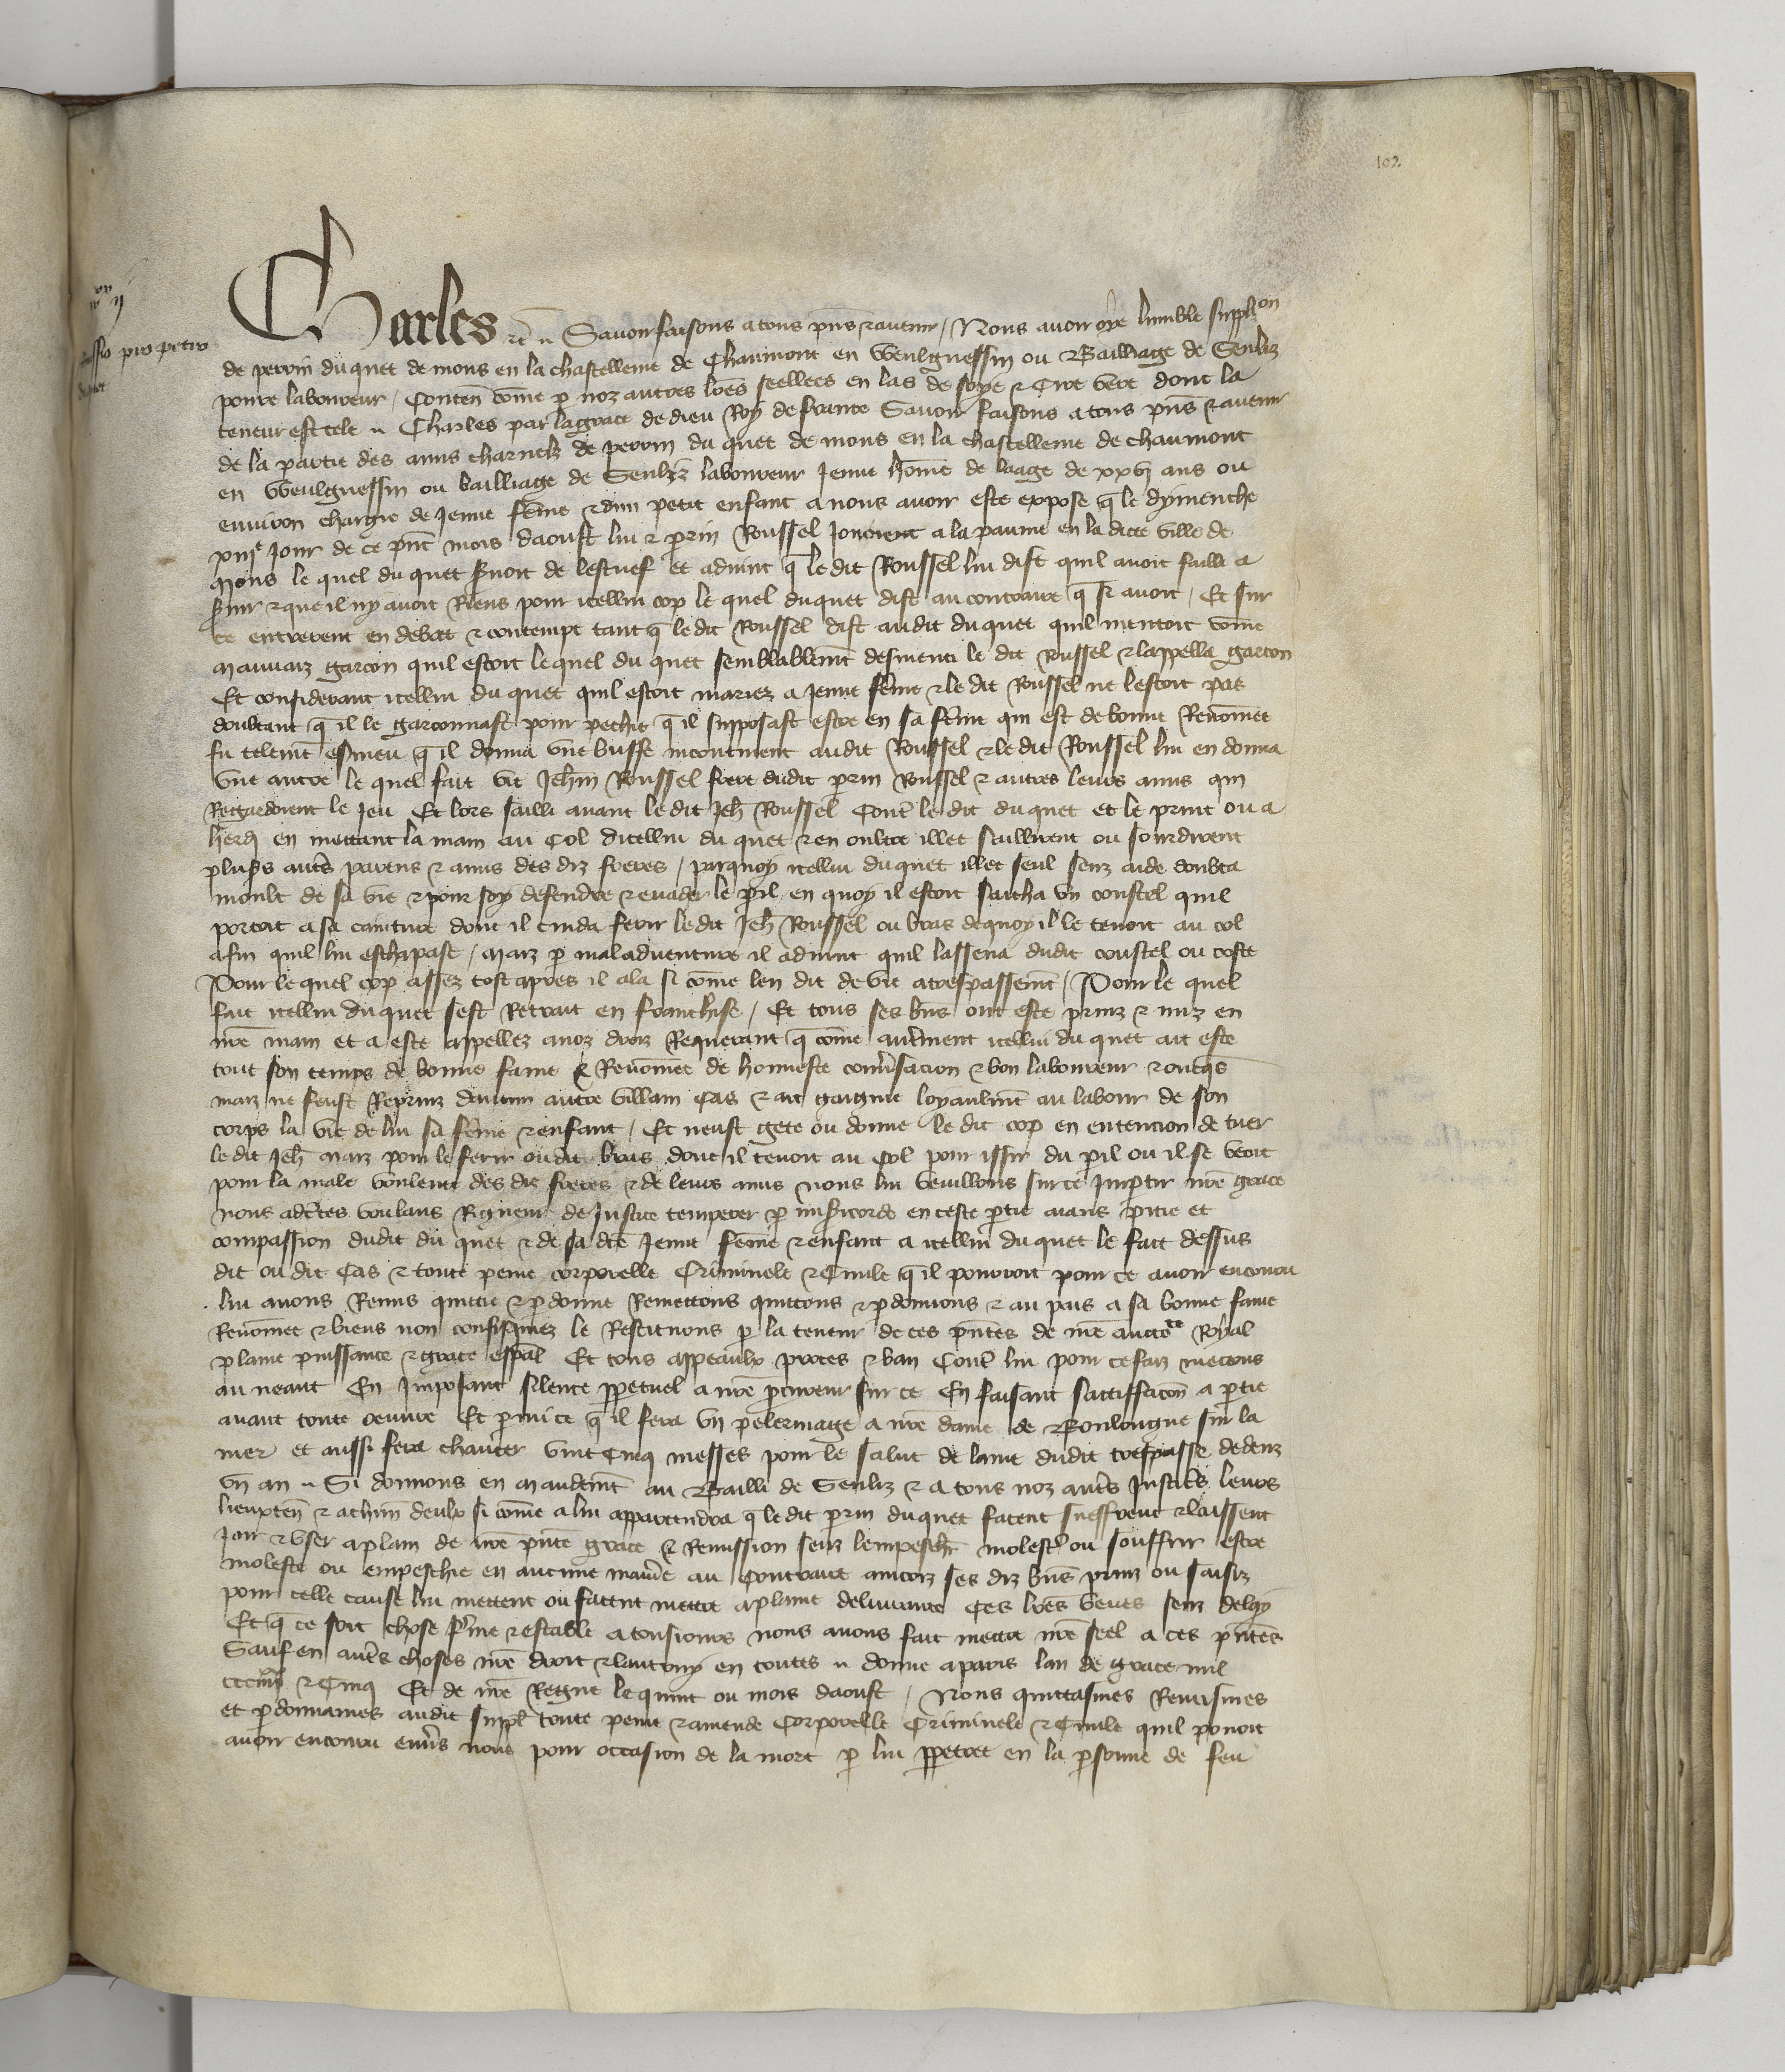 102
Charles etc. Savoir faisons a tous pñs et avenir / Nous avoir oye lumble supplion
de perrin du quet de mons en la chastellenie de Chaumont en Weulguessin ou Bailliage de Senliz
povre laboureur / Contenñ cõme p noz autres lres seellees en las de soye et Cire vert dont la
teneur est tele Charles par la grace de dieu Roy de france Savoir faisons a tous pñs et avenir
de la partie des amis charnelz de perrin du quet de mons en la chastellenie de chaumont
en Weulguessin ou bailliage de Senliz laboureur Jeune hõme de laage de xxvj ans ou
environ chargie de Jeune fẽme et dun petit enfant a nous avoir este expose q le dymenche
xiije Jour de ce pñt mois daoust lui et prin Roussel Jouoient a la paume en la dicte ville de
Mons le quel du quet svoit de lestuef et advint q le dit Roussel lui dist quil avoit failli a
svir et que il ny avoit Riens pour icellui cop le quel duquet dist au contraire q si avoit / Et sur
ce entrerent en debat et contempt tant q le dit Roussel dist audit du quet quil mentoit cõme
mauvaiz garcon quil estoit lequel du quet semblablemt desmenti le dit Roussel et lappella garcon
Et considerant icellui du quet quil estoit mariez a Jeune fẽme et le dit Roussel ne lestoit pas
doubtant q il le garconnast pour pechie q il supposast estre en sa fẽme qui est de bonne Renõmee
fu telemt esmeu q il donna une buffe incontinent audit Roussel et le dit Roussel lui en donna
une autre le quel fait vit Jehin Roussel frere dudit prin Roussel et autres leurs amis qui
Regardoient le Jeu Et lors sailli avant le dit Jeh Roussel Cont le dit du quet et le print ou a
herdi en mettant la main au Col dicellui du quet et en oultre illec saillirent ou sourdirent
plusrs autrs parens et amis des diz freres / parquoy icellui du quet illec seul senz aide doubta
moult de sa vie et pour soy defendre et evader le pil en quoy il estoit saicha un coustel quil
portoit a sa cainture dont il cuida ferir ledit Jeh Roussel ou bras dequoy il le tenoit au col
afin quil lui eschapast / maiz p mal adventure il advint quil lassena dudit coustel ou coste
Pour lequel cop assez tost apres il ala si cõme len dit de vie a trespassemt / Pour le quel
fait icellui du quet sest Retrait en franchise / Et tous ses bñs ont este prinz et miz en
nre main et a este appellez a noz droiz Requerant q cõme autrement icellui du quet ait este
tout son temps de bonne fame et Renõmee de honneste convrsacion et bon laboureur et oncqs
maiz ne feust Reprinz daucun autre villain Cas et ait gaignie loyaulmt au labour de son
corps la vie de lui sa fẽme et enfant / Et neust gete ou donne le dit cop en entencion de tuer
le dit Jeh maiz pour le ferir oudit bras dont il tenoit au Col pour issir du pil ou il se veoit
pour la male voulente des diz freres et de leurs amis nous lui vueillons sur ce Impartir nre grace
nous adctes voulans Rigueur de Justice temperer p misicorde en ceste ptie aians pitie et
compassion dudit du quet et de sa dce Jeune fẽme et enfant a icellui du quet le fait dessus
dit ou dit Cas et toute peine corporelle Criminele et Civile q il pourroit pour ce avoir encouru
lui avons Remis quittie et pdonne Remettons quittons et pdonnons et au pais a sa bonne fame
Renõmee et biens non confisquez le Restituons p la teneur de ces pñtes de nre aucte Royal
plaine puissance et grace espal Et tous appeaulx proces et ban Cont lui pour ce faiz mectons
au neant En Imposant silence ppetuel a nre pcureur sur ce En faisant satiffacoñ a ptie
avant toute oeuvre Et pmi ce q il fera un pelerinaige a nre dame de Boulongne sur la
mer et aussi fera chanter vint Cinq messes pour le salut de lame dudit trespasse dedenz
un an Si donnons en mandemt au Bailli de Senliz et a tous noz autrs Justicrs leurs
lieuxten et a chun deulx si cõme a lui appartendra q ledit prin duquet facent sueffrent et laissent
Joir et user a plain de nre pñte grace et Remission senz lempeschr molestr ou souffrir estre
moleste ou empeschie en aucune manre au Contraire aincoiz ses diz bñs prinz ou saisiz
pour celle cause lui mettent ou facent mettre a plaine delivrance Ces lres veues senz delay
Et q ce soit chose fme et estable a tousjours nous avons fait mettre nre seel a ces pñtes
Sauf en autrs choses nre droit et lautruy en toutes donne a paris lan de grace mil
ccciiijxx et Cinq Et de nre Regne le quint ou mois daoust / Nous quittasmes Remismes
et pdonnasmes audit suppl toute peine et amende Corporelle Criminele et Civile quil povoit
avoir encouru envrs nous pour occasion de la mort p lui ppetree en la psonne de feu